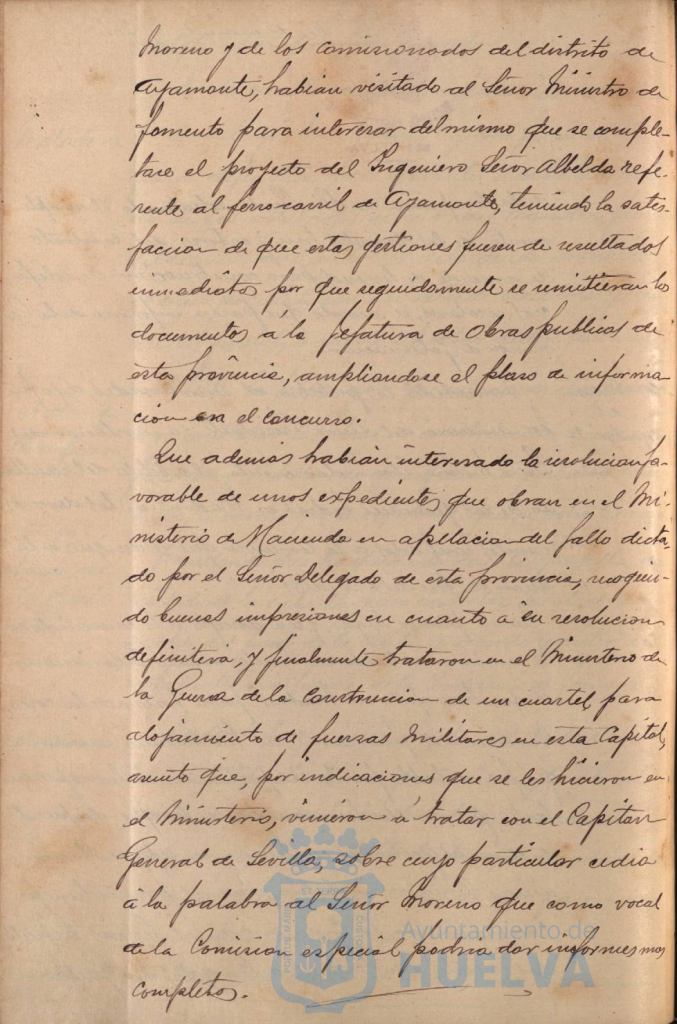 Moreno y de los comisionados del distrito de
Ayamonte, habian visitado al Señor Ministro de
fomento para interesar del mismo que se comple-
tase el proyecto del Ingeniero Señor Albelda refe-
rente al ferro carril de Ayamonte, teniendo la satis-
faccion de que estas gestiones fueran de resultados
inmediatos por que seguidamente se remitieran los
documentos á la Jefatura de Obras publicas de
esta provincia, ampliandose el plaso de informa-
cion en el concurso.
Que además habian interesado la resolucion fa-
vorable de unos expedientes que obran en el Mi-
nisterio de Hacienda en apelacion del fallo dicta-
do por el Señor Delegado de esta provincia, recogien-
do buenas impresiones en cuanto á su resolucion
definitiva, y finalmente trataron en el Ministerio de
la Guerra de la construccion de un cuartel para
alojamiento de fuerzas militares en esta Capital,
asunto que, por indicaciones que se les hicieron en
el Ministerio, vinieron á tratar con el Capitan
General de Sevilla, sobre cuyo particular cedia
á la palabra al Señor Moreno que como vocal
de la Comision especial podria dar informes mas
completos.
Ayuntamiento de
HUELVA